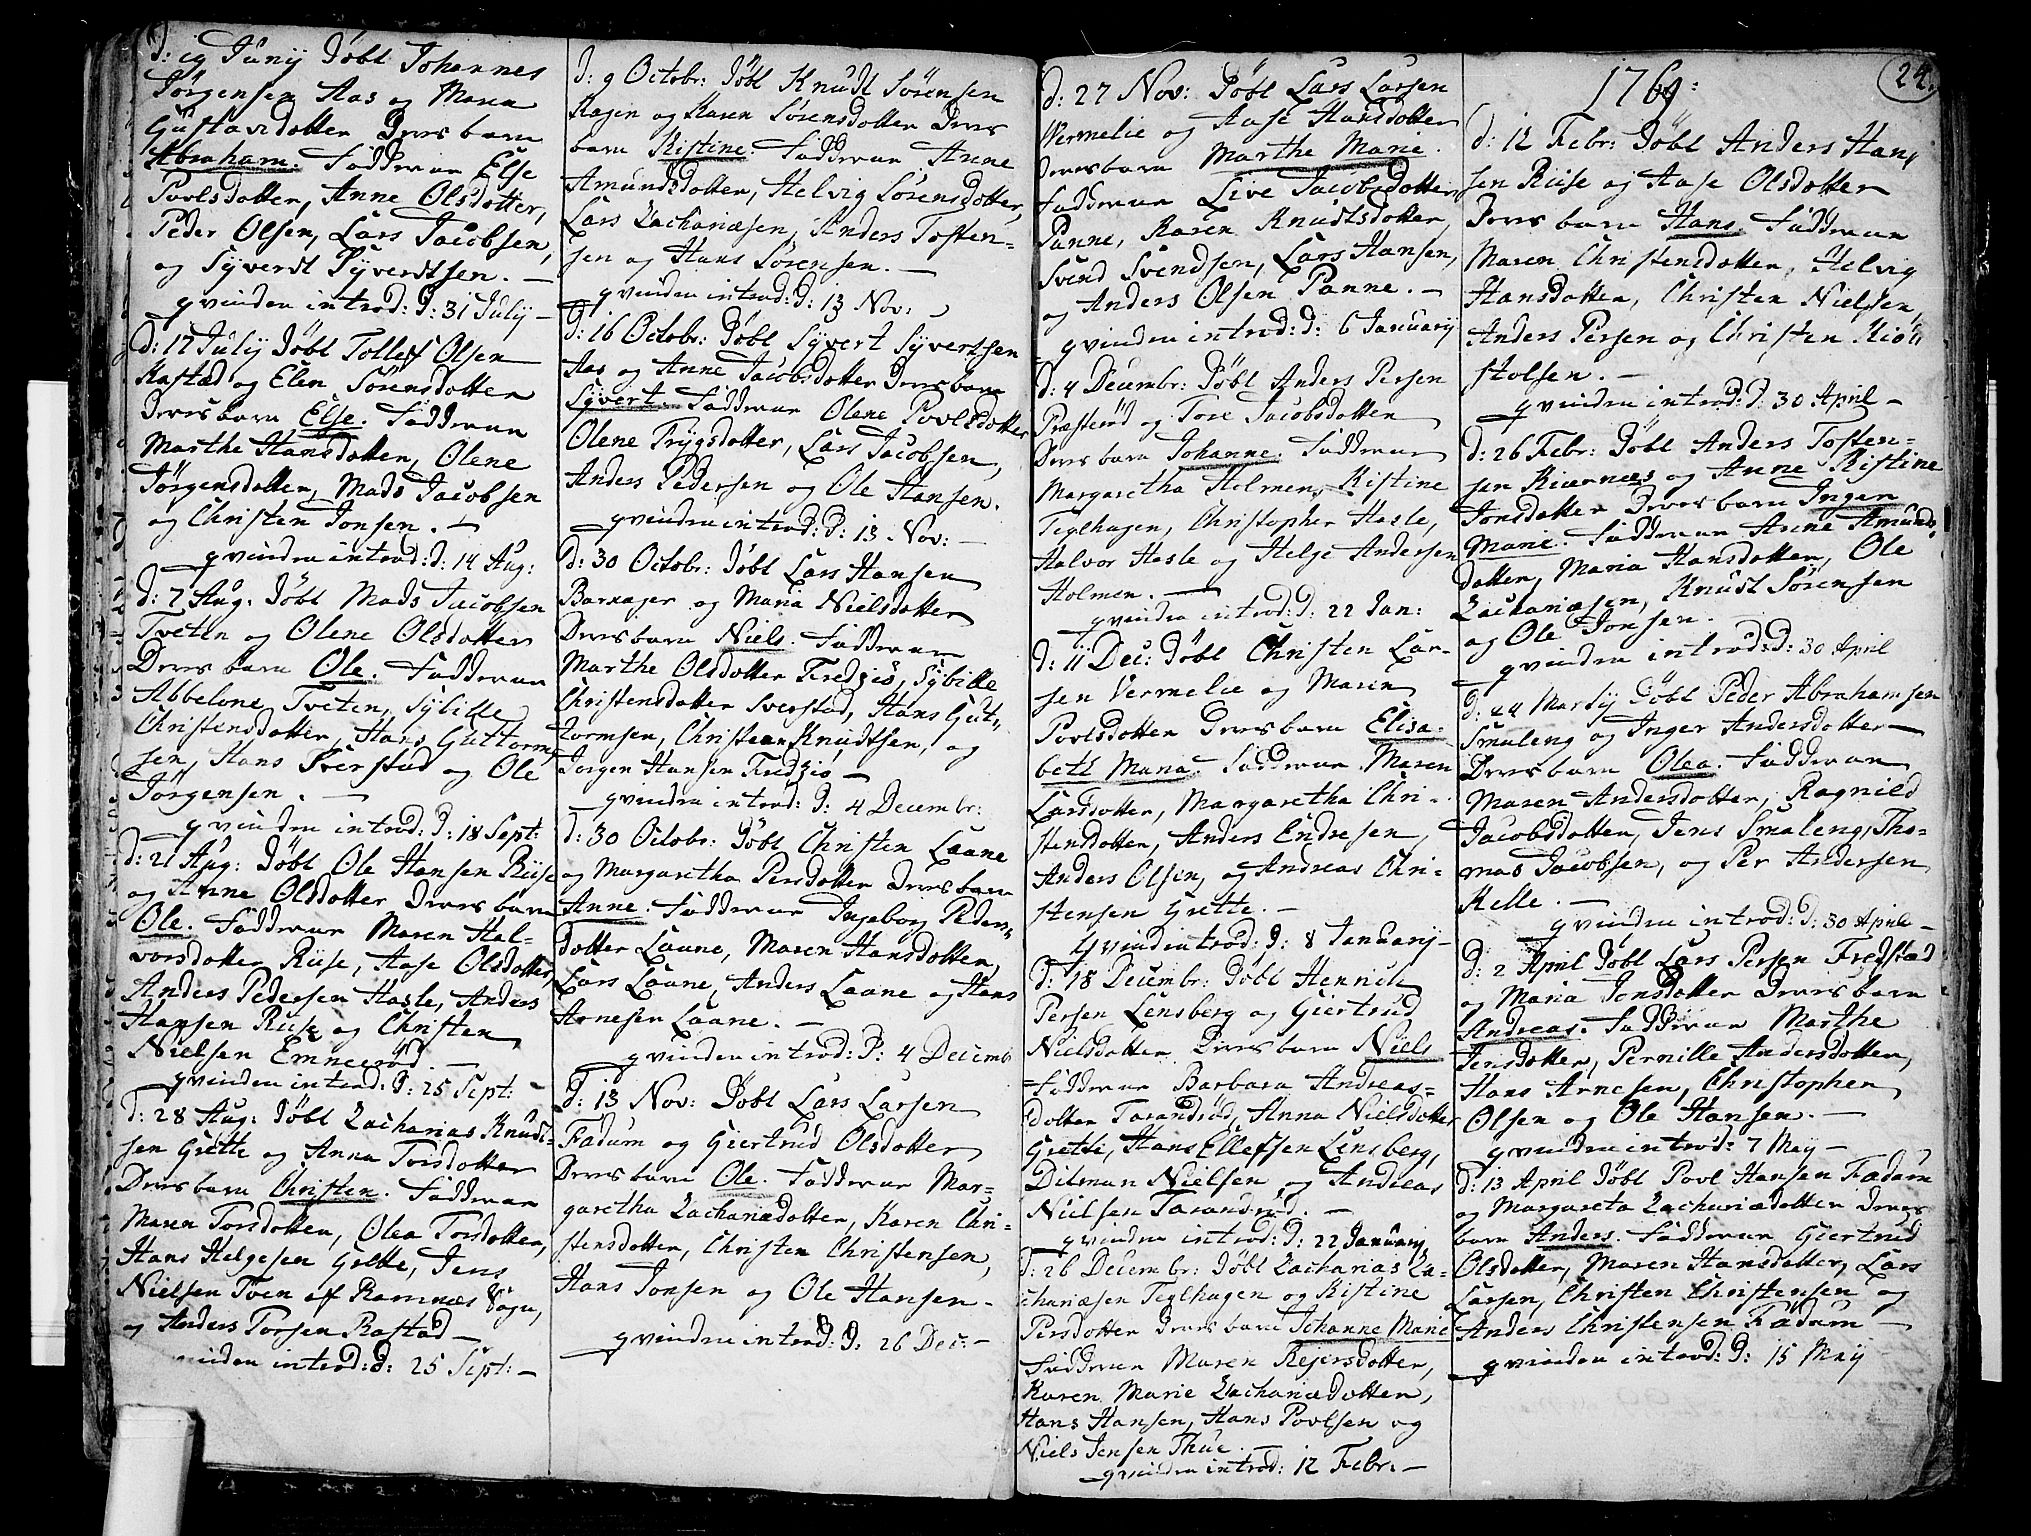 d: 19 Junij Döbt Johannes
Jörgensen Aas og Maren
Gustavsdotter Deres barn
Abraham. Fadderne Else
Povlsdotter, Anne Olsdotter,
Peder Olsen, Lars Jacobsen,
og Syverdt Syverdtsen. —
qvinden introd: d: 31 July —
d: 17 July Döbt Tollef Olsen
Rastad og Elen Sörensdotter
Deres barn Else. Fadderne
Marthe Hansdotter, Olene
Jörgensdotter, Mads Jacobsen
og Christen Jonsen. —
qvinden introd: d: 14 Aug:
d: 7 Aug: Döbt Mads Jacobsen
Tveten og Olene Olsdotter
Deres barn Ole. Fadderne
Abbelone Tveten, Sybille
Christensdotter, Hans Guttorm-
sen, Hans Sverstad og Ole
Jörgensen. —
qvinden introd: d: 18 Sept:
d: 21 Aug: Döbt Ole Hansen Riise
og Anne Olsdotter Deres barn
Ole. Fadderne Maren Hal-
vorsdotter Riise, Aase Olsdotter,
Anders Pedersen Hasle, Anders
Hansen Riise og Christen
Nielsen Emneröd. —
qvinden introd: d: 25 Sept: —
d: 28 Aug: Döbt Zacharias Knudt-
sen Grette og Anna Torsdotter
Deres barn Christen. Fadderne
Maren Torsdotter, Olea Torsdotter,
Hans Helgesen Grette, Jens
Nielsen Tven af Ramnes Sogn,
og Anders Torsen Rastad —
qvinden introd: d: 25 Sept: —
d: 9 Octobr: Döbt Knudt Sörensen
Ragin og Karen Sörensdotter Deres
barn Kistine. Fadderne Anne
Amundsdotter, Helvig Sörensdotter,
Lars Zachariæsen, Anders Tosten-
sen og Hans Sörensen. —
qvinden introd: d: 13 Nov:
d: 16 Octobr: Döbt Syvert Syvertsen
Aas og Anne Jacobsdotter Deres barn
Syvert. Fadderne Olene Povlsdotter
Olene Trygsdotter, Lars Jacobsen,
Anders Pedersen og Ole Hansen.
qvinden introd: d: 13 Nov: —
d: 30 Octobr: Döbt Lars Hansen
Barkager og Maria Nielsdotter
Deres barn Niels. Fadderne
Marthe Olsdotter Fredziö, Sybille
Christensdotter Sverstad, Hans Gut-
tormsen, Christean Knudtsen, og
Jorgen Hansen Fredziö —
qvinden introd: d: 4 Decembr:
d: 30 Octobr: Döbt Christen Laane
og Margaretha Persdotter Deres barn
Anne. Fadderne Ingeborg Peders-
dotter Laane, Maren Hansdotter
Lars Laane, Anders Laane og Hans
Arnesen Laane. —
qvinden introd: d: 4 Decemb
d: 13 Nov: Döbt Lars Larsen
Fadum og Giertrud Olsdotter
Deres barn Ole. Fadderne Mar-
garetha Zachariædotter, Karen Chri-
stensdotter, Christen Christensen,
Hans Jonsen og Ole Hansen —
qvinden introd: d: 26 Dec: —
d: 27 Nov: Döbt Lars Larsen
Vermelie og Aase Hansdotter
Deres barn Marthe Marie.
Fadderne Live Jacobsdotter
Panne, Karen Knudtsdotter,
Svend Svendsen, Lars Hansen,
og Anders Olsen Panne. —
qvinden introd: d: 6 January
d: 4 Decembr: Döbt Anders Persen
Præsteröd og Tore Jacobsdotter
Deres barn Johanne. Fadderne
Margaretha Holmen, Kistine
Teglhagen, Christopher Hasle,
Halvor Hasle og Helge Andersen
Holmen. —
qvinden introd: d: 22 Jan:
d: 11 Dec: Döbt Christen Lar-
sen Vermelie og Maren
Povlsdotter Deres barn Elisa-
beth Maria. Fadderne Maren
Larsdotter, Margaretha Chri-
stensdotter, Anders Endresen,
Anders Olsen, og Andreas Chri-
stensen Grette. —
qvind introd: d: 8 January —
d: 18 Decembr: Döbt Henrich
Persen Lensberg og Giertrud
Nielsdotter Deres barn Niels
Fadderne Barbara Andreas-
dotter Tarandröd, Anna Nielsdotter
Grette, Hans Ellefsen Lensberg,
Ditman Nielsen og Andreas
Nielsen Tarandröd. —
qvinden introd: d: 22 January
d: 26 Decembr: Döbt Zacharias Za-
chariæsen Teglhagen og Kistine
Persdotter Deres barn Johanne Marie
Fadderne Maren Rejersdotter,
Karen Marie Zachariædotter,
Hans Hansen, Hans Povlsen og
Niels Jensen Thue.
qvinden introd: 12 Febr: —
24.
1769:
d: 12 Febr: Döbt Anders Han-
sen Riise og Aase Olsdotter
Deres barn Hans. Fadderne
Maren Christensdotter, Helvig
Hansdotter, Christen Nielsen,
Anders Persen og Christen Kiö-
stolsen. —
qvinden introd: d: 30 April —
d: 26 Febr: Döbt Anders Tosten-
sen Kiærnæs og Anne Kistine
Jonsdotter Deres barn Inger
Marie. Fadderne Anne Amunds-
dotter, Maria Hansdotter, Ole
Zachariæsen, Knudt Sörensen
og Ole Jonsen. —
qvinden introd: d: 30 April
d: 24 Martij Döbt Peder Abrahamsen
Smaleng og Inger Andersdotter —
Deres barn Olea. Fadderne
Maren Andersdotter, Ragnild
Jacobsdotter, Jens Smaleng, Tho-
mas Jacobsen, og Per Andersen
Kelle. —
qvinden introd: d: 30 April —
d: 2 April Döbt Lars Persen Fredstad
og Maria Jonsdotter Deres barn
Andreas. Fadderne Marthe
Jensdotter, Pernille Andersdotter,
Hans Arnesen, Christopher
Olsen og Ole Hansen. —
qvinden introd: 7 Maij —
d: 13 April Döbt Povl Hansen Fadum
og Margareta Zachariædotter Deres
barn Anders. Fadderne Giertrud
Olsdotter, Maren Hansdotter, Lars
Larsen, Christen Christensen og
Anders Christensen Fadum —
qvinden introd: d: 15 Maij